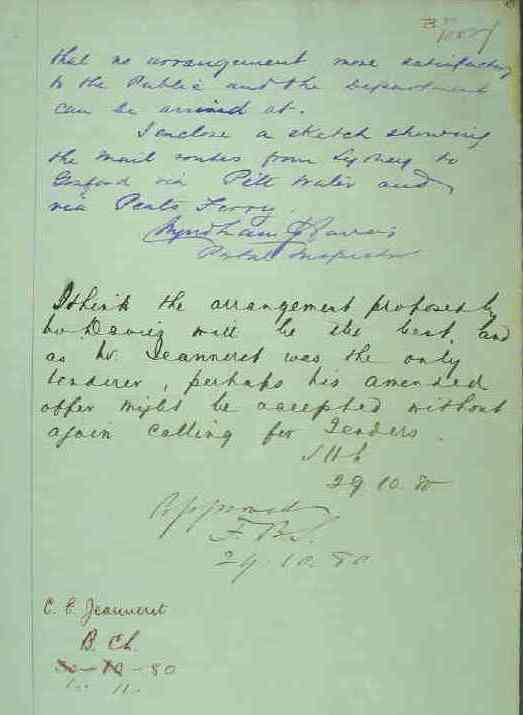 that no arrangement more satisfactory
to the Public and the Department
can be arrived at.
I enclose a sketch showing
the mail routes from Sydney to
Gosford via Pitt Water and
via Peats Ferry.
Wyndham J Davies
Postal Inspector
I think the arrangement proposed by
Mr. Davies will be the best, and
as Mr. Jeanneret was the only
tenderer, perhaps his amended
offer might be accepted without
again calling for Tenders.
29.10.80
Approved
F.B.S.
29.10.80
C. E. Jeanneret
B. Ch.
80
11.